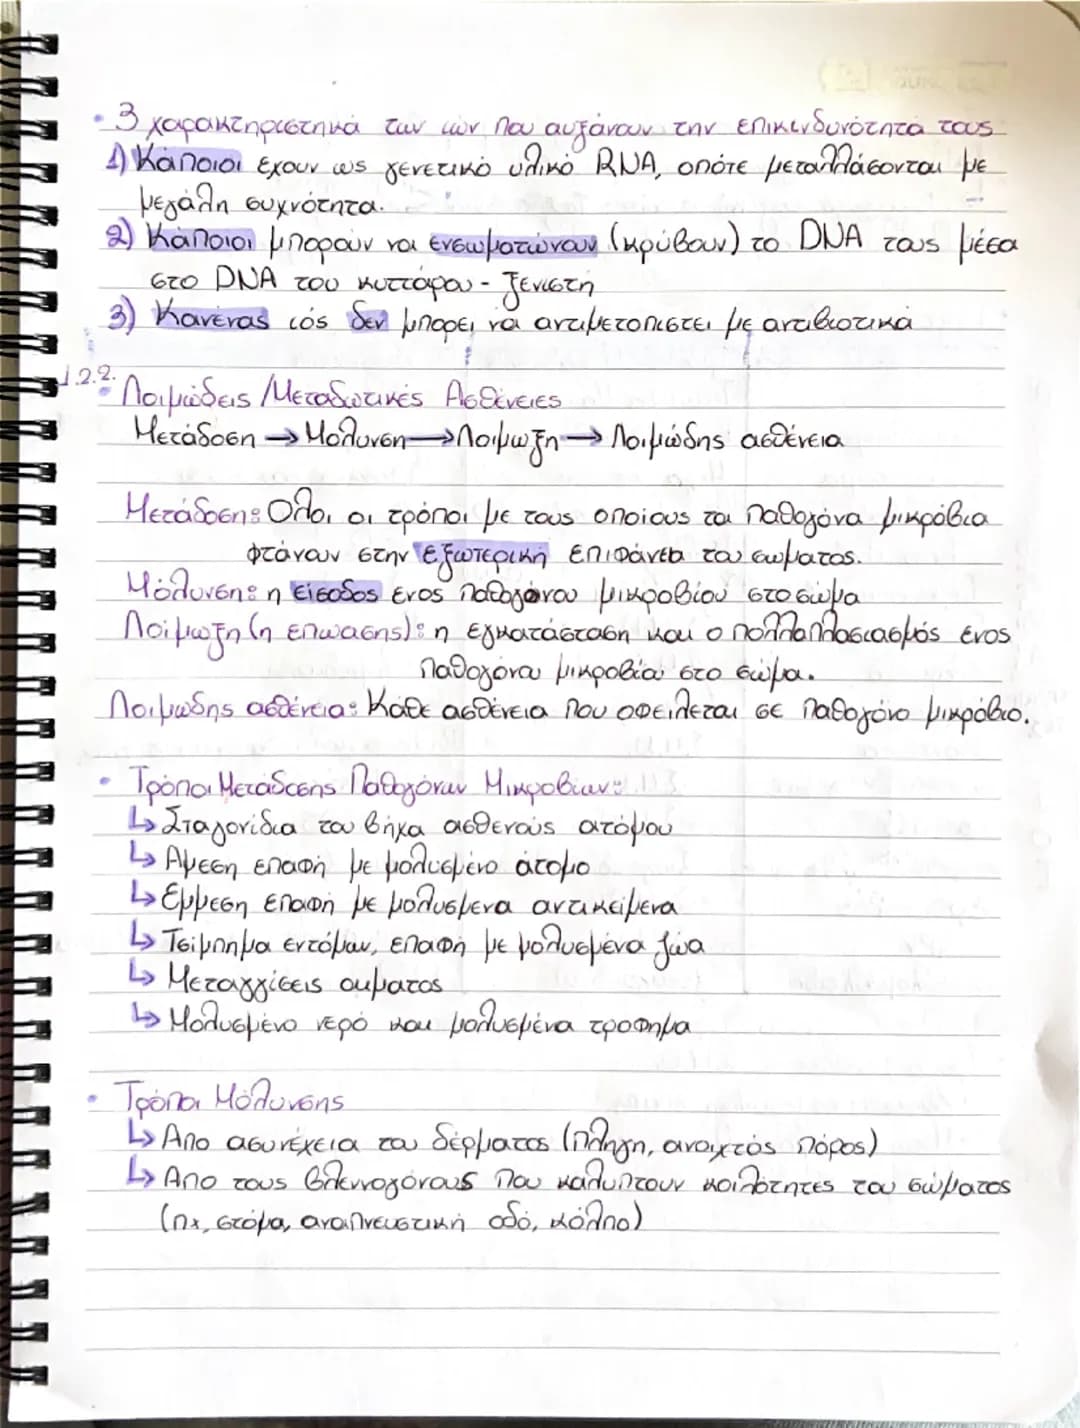 • 3 χαρακτηριστηκά των ιών που αυξάνουν την επικινδυνότητά τους
1) Κάποιοι έχουν ως γενετικό υλικό RNA, οπότε μεταλλάσονται με
μεγάλη συχνότητα.
2) Κάποιοι μπορούν να ενσωματώνουν (κρύβουν) το DNA τους μέσα
στο DNA του κυττάρου - ξενιστή
3) Κανένας ιός δεν μπορεί να αντιμετοπιστεί με αντιβιοτικά
1.2.2.
• Λοιμώδεις / Μεταδωτικές Ασθένειες
Μετάδοση → Μόλυνση → Λοίμωξη → Λοιμώδης ασθένεια
Μετάδοση: Όλοι οι τρόποι με τους οποίους τα παθογόνα μικρόβια
φτάνουν στην εξωτερική επιφάνεια του σώματος.
Μόλυνση: η είσοδος ενός παθογόνου μικροβίου στο σώμα
Λοίμωξη (η επώασης): η εγκατάσταση και ο πολλαπλασιασμός ενός
παθογόνου μικροβίου στο σώμα.
Λοιμώδης ασθένεια: Κάθε ασθένεια που οφείλεται σε παθογόνο μικρόβιο.
• Τρόποι Μετάδοσης Παθογόνων Μικροβίων:
↳ Σταγονίδια του βήχα ασθενούς ατόμου
↳ Άμεση επαφή με μολυσμένο άτομο
↳ Έμμεση επαφή με μολυσμένα αντικείμενα
↳ Τσίμπημα εντόμων, επαφή με μολυσμένα ζώα
↳ Μεταγγίσεις αίματος
↳ Μολυσμένο νερό και μολυσμένα τρόφημα
• Τρόποι Μόλυνσης
↳ Απο ασυνέχεια του δέρματος (πληγη, ανοιχτός πόρος)
↳ Απο τους βλεννογόνους που καλύπτουν κοιλότητες του σώματος
(πχ, στόμα, αναπνευστική οδό, κόλπο)